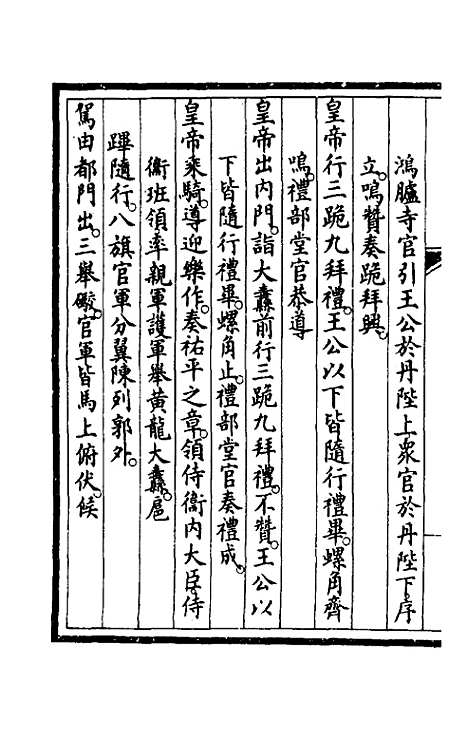 鴻臚寺官引王公於丹陛上衆官於丹陛下。序
立。鳴贊奏跪拜興。
皇帝行三跪九拜禮。王公以下皆隨行禮畢。螺角齊
鳴。禮部堂官恭導
皇帝出内門。詣大纛前行三跪九拜禮。不贊。王公以
下皆隨行禮畢。螺角止。禮部堂官奏禮成。
皇帝乘騎。導迎樂作。奏祐平之章。領侍衞内大臣。侍
衞班領率親軍護軍舉黄龍大纛。扈
蹕隨行。八旗官軍分翼陳列郭外。
駕由都門出。三舉礮。官軍皆馬上俯伏。候